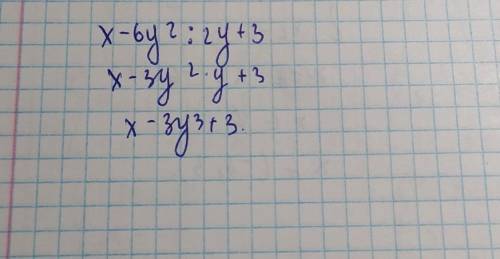 x - 6y² : 2y + 3
x - 3y² · y + 3
x - 3y³ + 3.